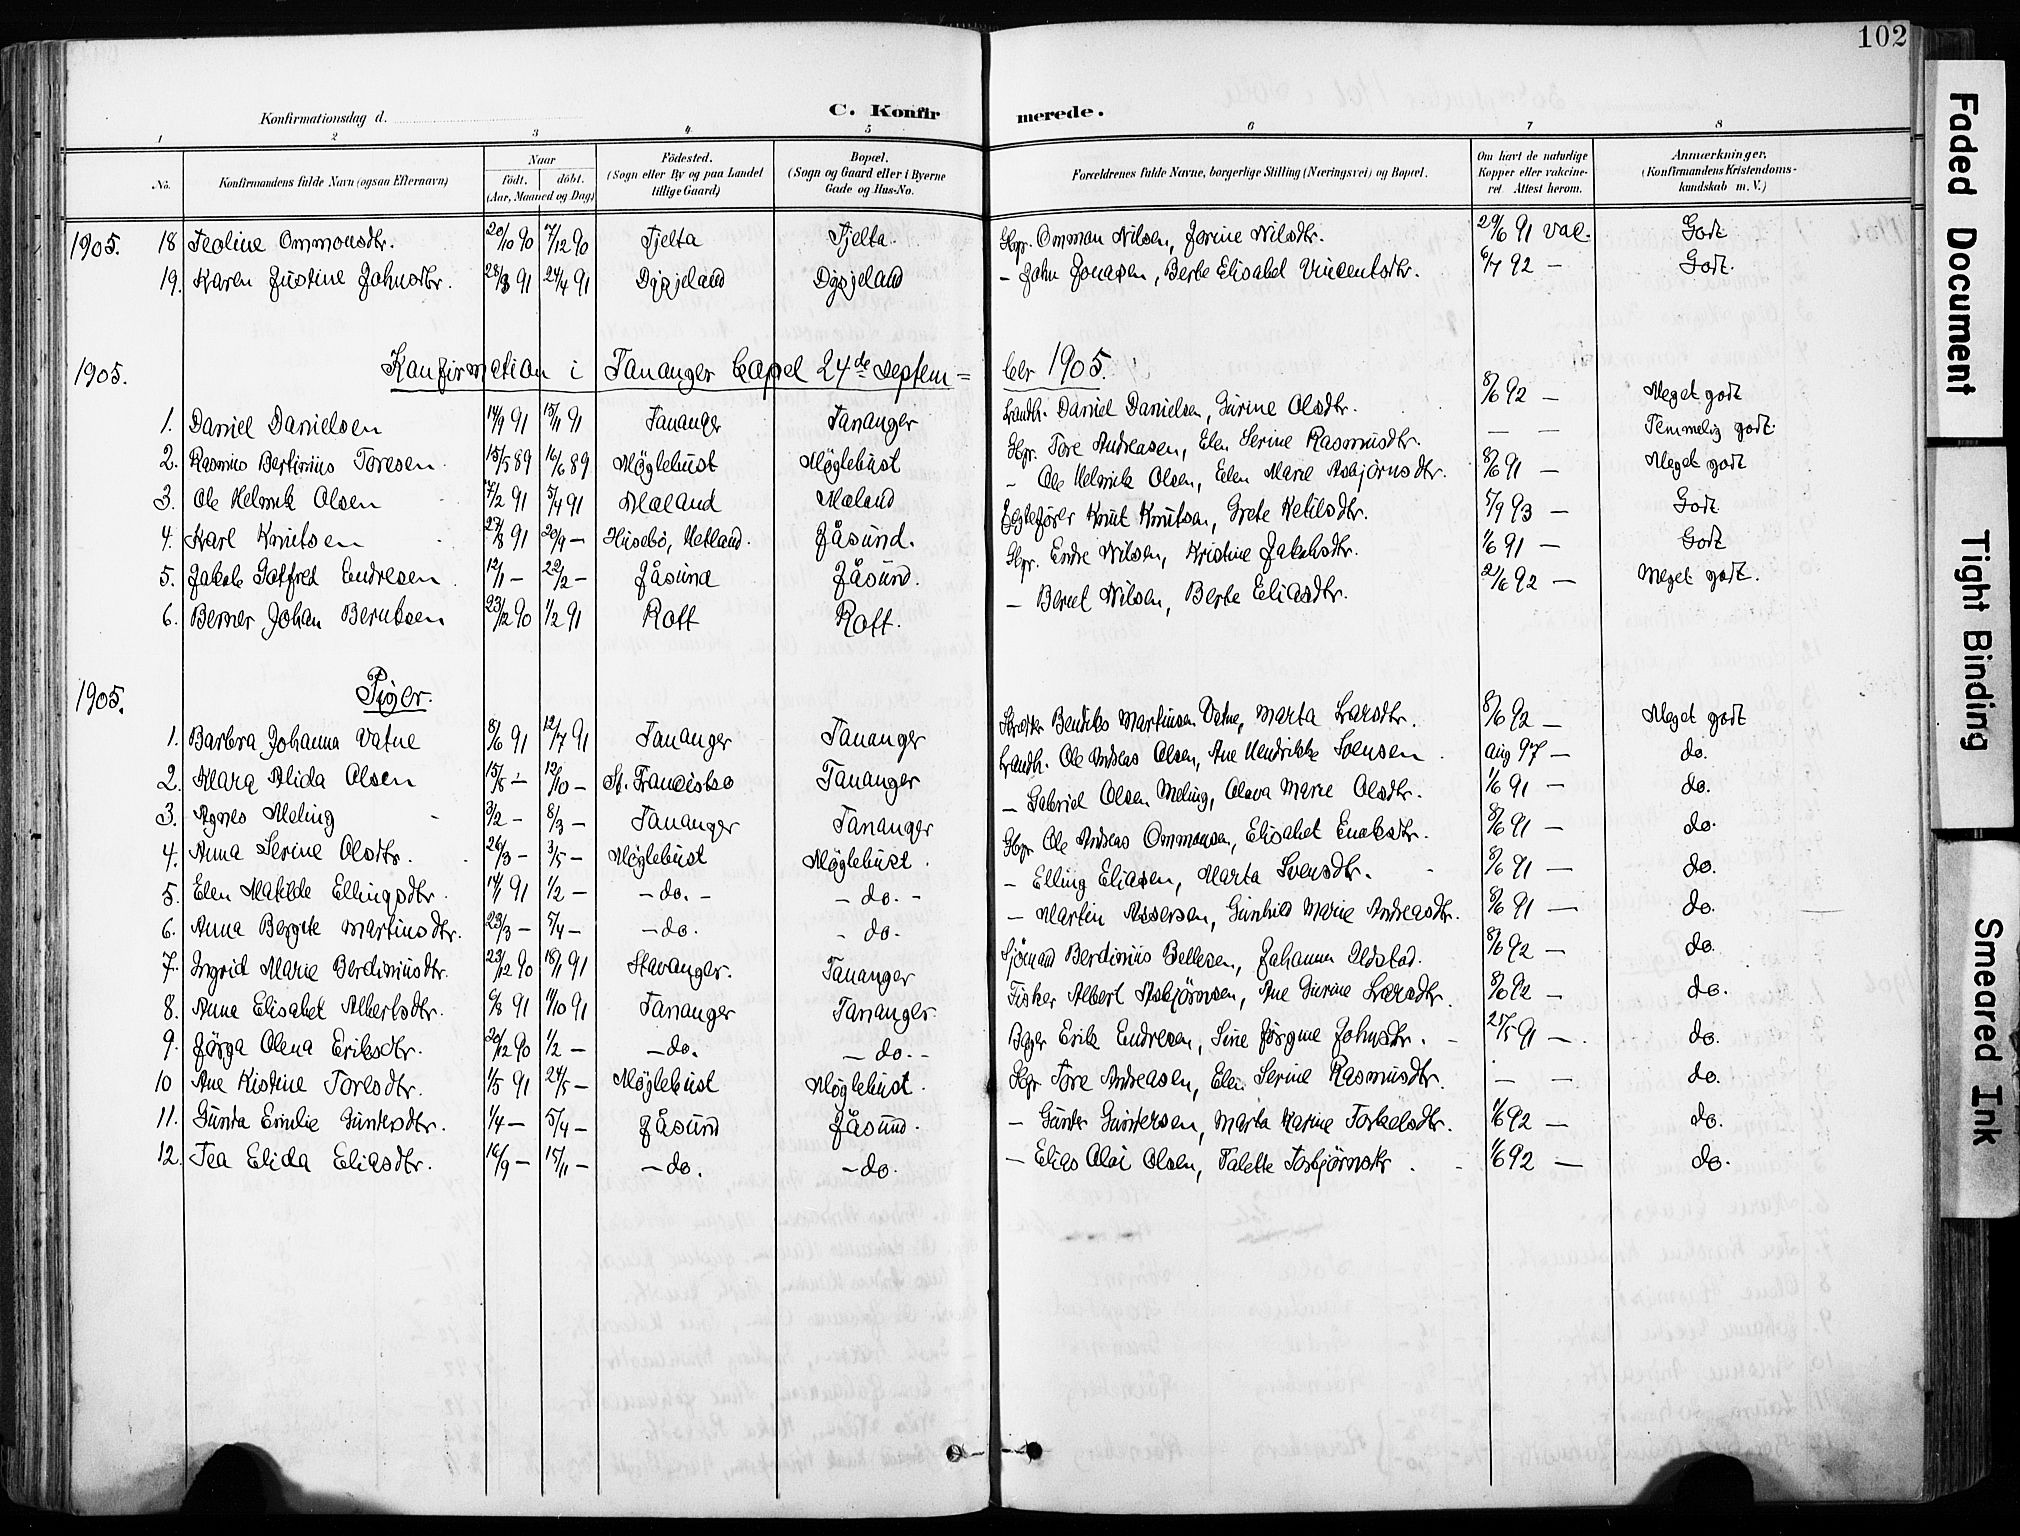 102
Faded Document
Tight Binding
Smeared Ink
Konfirmationsdag d.
C. Konfirmerede.
1 2 3 4 5 6 7 8
No. Konfirmandens fulde Navn (ogsaa Efternavn) Naar født. døbt. (Aar, Maaned og Dag) Födested. (Sogn eller By og paa Landet tillige Gaard) Bopæl. (Sogn og Gaard eller i Byerne Gade og Hus-No. Forældrenes fulde Navne, borgerlige Stilling (Næringsvei) og Bopæl. Om havt de naturlige Kopper eller vakcineret. Attest herom. Anmærkninger. (Konfirmandens Kristendomskundskab m. V.)
1905. 18 Teoline Ommonsdtr. 20/10 90 7/12 90 Tjelta Tjelta. Gbr. Ommon Nilsen, Jorine Nilsdtr. 29/6 91 vac. Godt
19. Karen Justine Johnsdtr. 28/3 91 24/4 91 Dysjeland Dysjeland – John Jonasen, Berte Elisabet Vincentsdtr. 6/7 92 – Godt.
1905. Konfirmation i Tananger Capel 24de septem= ber 1905.
1. Daniel Danielsen 14/9 91 15/11 91 Tananger Tananger Landh. Daniel Danielsen, Gurine Olsdtr. 8/6 92 – Meget godt
2. Rasmus Bertinius Toresen 15/5 89 16/6 89 Møglebust Møglebust Gbr. Tore Andreasen, Elen Serine Rasmusdtr. – – Temmelig godt.
3. Ole Helmik Olsen 7/2 91 5/4 91 Mæland Mæland – Ole Helmik Olsen, Elen Marie Asbjørnsdtr. 8/6 91 – Meget godt
4. Karl Knutsen 27/8 91 20/9 – Hisebø, Hetland. Jåsund. Egtefører Knut Knutsen, Grete Ketilsdtr. 5/9 93 – Godt
5. Jakob Gotfred Endresen 12/1 – 22/2 – Jåsund Jåsund. Gbr. Endre Nilsen, Kristine Jakobsdtr. 1/6 91 – Godt
6. Berner Johan Berntsen 23/12 90 1/2 91 Rott Rott. – Bernt Nilsen, Berte Eliasdtr. 2/6 92 – Meget godt.
1905. Piger.
1. Barbra Johanna Vatne 8/6 91 12/7 91 Tananger Tananger Bendiks Martinsen Vatne, Marta Larsdtr. 8/6 92 – Meget godt
2. Mary Alida Olsen 15/8 – 12/10 – St. Francisko Tananger Landh. Ole Andreas Olsen, Ane Hendrikke Svensen aug 97 – do.
3. Agnes Meling 3/2 – 8/3 – Tananger Tananger – Gabriel Olsen Meling, Olava Marie Olsdtr. 1/6 91 – do.
4. Anna Serine Olsdtr. 26/3 – 3/5 – Møglebust Møglebust. Gbr Ole Andreas Ommonsen, Elisabet Enoksdtr. 8/6 91 – do.
5. Elen Matilde Ellingsdtr. 14/1 91 1/2 – – do. – – do. – – Elling Eliasen, Marta Svensdtr. 8/6 91 – do.
6. Anna Bergete Martinsdtr. 23/3 – 5/4 – – do. – do. – Martin Assersen, Gunhild Marie Andreasdtr. 8/6 91 – do.
7. Ingrid Marie Berdiniusdtr. 23/12 90 18/1 91 Stavanger. Tananger Sjømand Berdinius Pellesen, Johanna Oldstad. 8/6 92 – do.
8. Anna Elisabet Albertsdtr. 6/8 91 11/10 91 Tananger Tananger. Fisker Albert Asbjørnsen, Ane Gurine Larsdtr. 8/6 92 – do.
9. Jørga Olena Eriksdtr. 20/12 90 1/2 – – do. – do. – Bager Erik Endresen, Sine Jørgine Johnsdtr. 25/5 91 – do.
10 Ane Kistine Toresdtr. 1/5 91 24/5 – Møglebust Møglebust. Gbr Tore Andreasen, Elen Serine Rasmusdtr. – – do.
11. Gunda Emilie Guntersdtr. 1/4 – 5/4 – Jåsund Jåsund. – Gunder Gundersen, Marta Karine Torkelsdtr. 1/6 92 – do.
12. Tea Elida Eliasdtr. 16/9 – 15/11 – – do. – do. – Elias Olai Olsen, Talette Torbjørnsdtr. 1/6 92 – do.